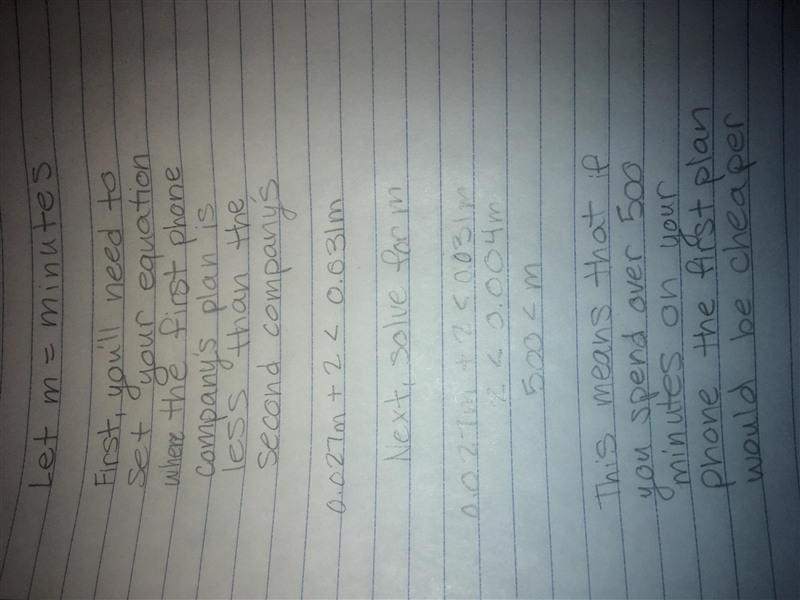 Let m = minutes
First, you'll need to
set your equation
where the first phone
company's plan is
less than the
second company's
0.027m + 2 < 0.031m
Next, solve for m
0.027m + 2 < 0.031m
2 < 0.004m
500 < m
This means that if
you spend over 500
minutes on your
phone the first plan
would be cheaper